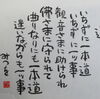 いちずに一本道
いちずに一ツ事
観音さまに助けられ
佛さまに守られて
曲りなりにも一本道
迷いながらも一ツ事
みつを